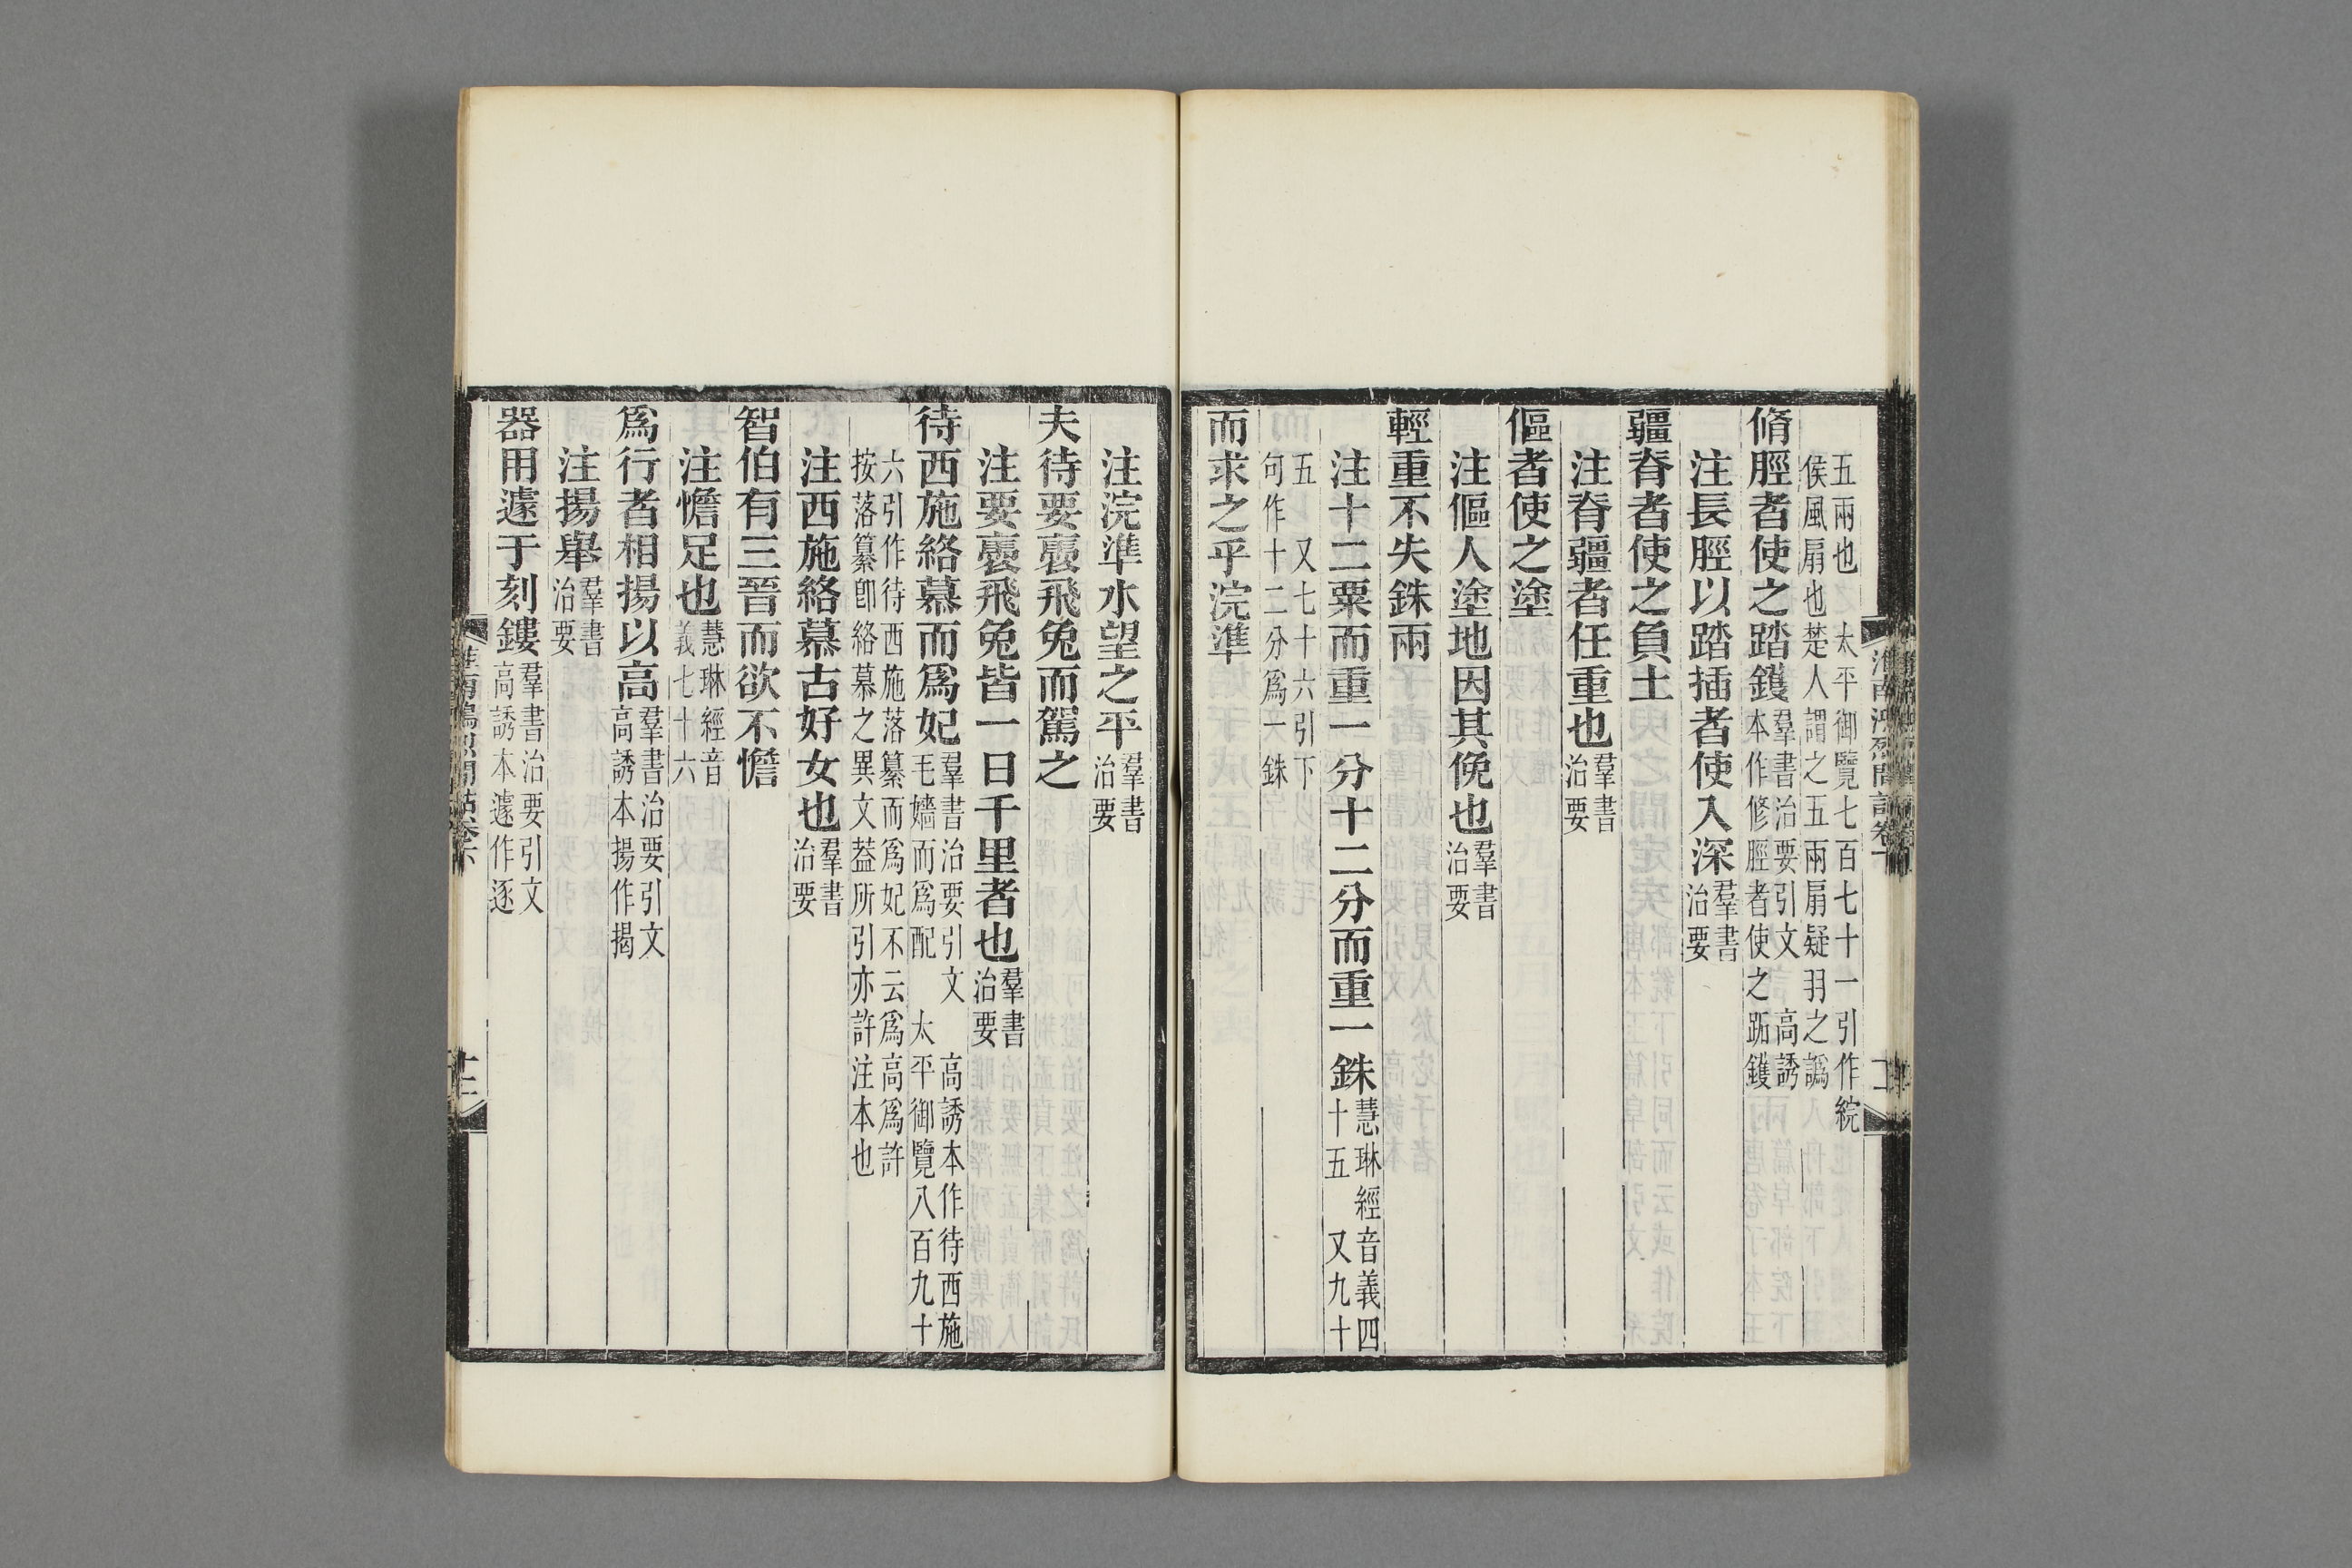 五兩也　太平御覽七百七十一引作綄
侯風扇也楚人謂之五兩扇疑羽之譌
脩脛者使之踏钁羣書治要引文　高誘
本作修脛者使之跖钁
注長脛以踏插者使入深羣書
治要
彊脊者使之負土
注脊彊者任重也羣書
治要
傴者使之塗
注傴人塗地因其俛也羣書
治要
輕重不失銖兩
注十二粟而重一分十二分而重一銖慧琳經音義四
十五　又九十
五　又七十六引下
句作十二分爲一銖
而求之乎浣準
注浣準水望之平羣書
治要
夫待要褭飛兔而駕之
注要褭飛兔皆一日千里者也羣書
治要
待西施絡慕而爲妃羣書治要引文　高誘本作待西施
毛嬙而爲配　太平御覽八百九十
六引作待西施落纂而爲妃不云爲高爲許
按落纂卽絡慕之異文葢所引亦許注本也
注西施絡慕古好女也羣書
治要
智伯有三晉而欲不憺
注憺足也慧琳經音
義七十六
爲行者相揚以高羣書治要引文
高誘本揚作揭
注揚舉羣書
治要
器用遽于刻鏤羣書治要引文
高誘本遽作逐